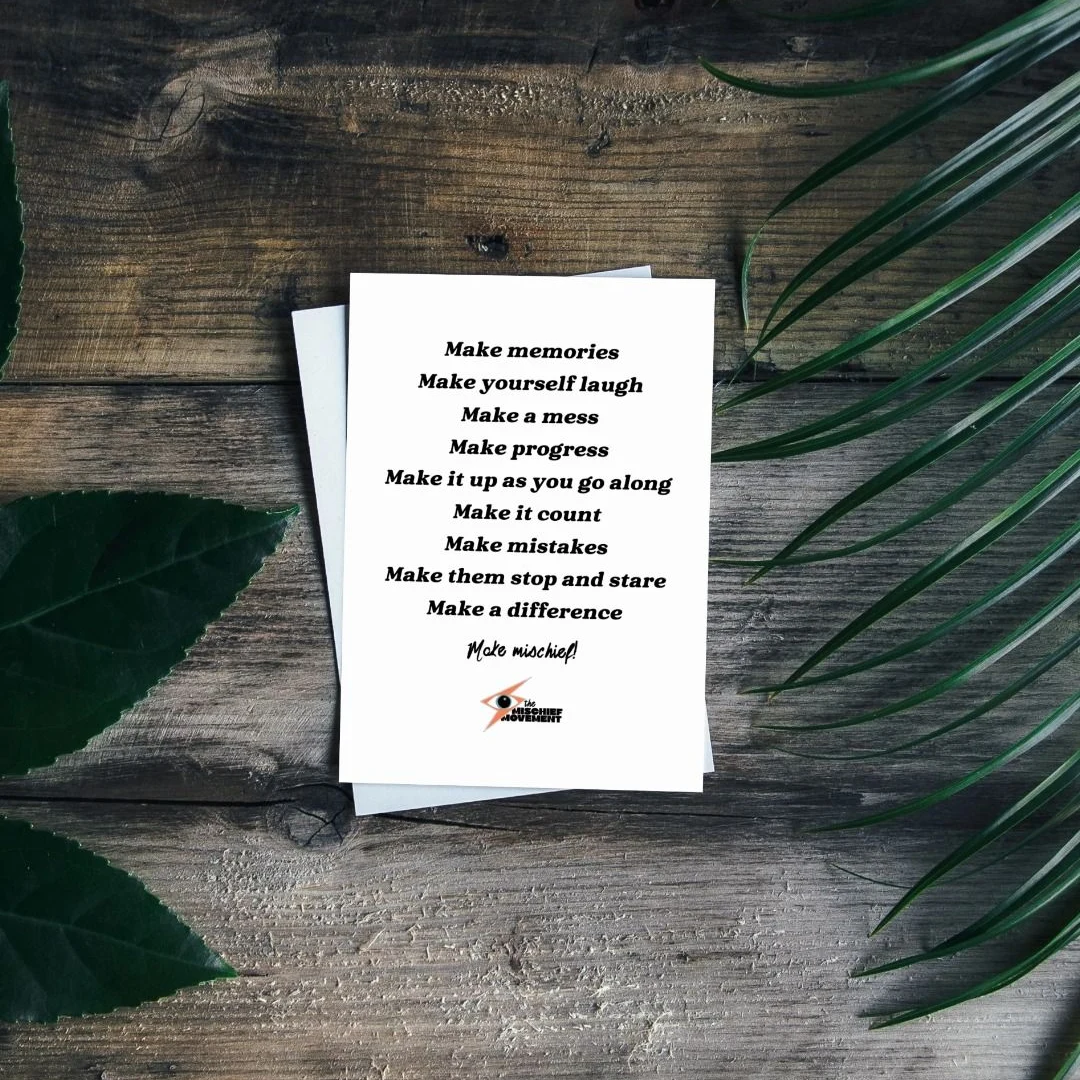 Make memories
Make yourself laugh
Make a mess
Make progress
Make it up as you go along
Make it count
Make mistakes
Make them stop and stare
Make a difference
Make mischief!
the
MISCHIEF
MOVEMENT